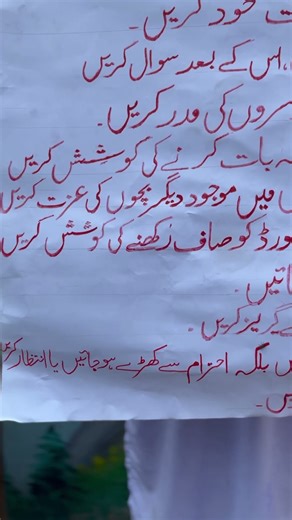 خود کریں۔
اس کے بعد سوال کریں
کی مدد کریں۔
بات کرنے کی کوشش کریں
میں موجود دیگر بچوں کی عزت کریں
کو صاف رکھنے کی کوشش کریں
گریز کریں۔
بلکہ احترام سے کھڑے ہو جائیں یا انتظار کریں